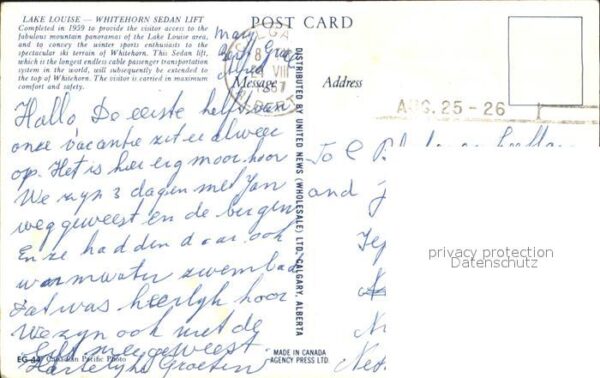 LAKE LOUISE — WHITEHORN SEDAN LIFT
Completed in 1959 to provide the visitor access to the
fabulous mountain panoramas of the Lake Louise area,
and to convey the winter sports enthusiasts to the
spectacular ski terrain of Whitehorn. This Sedan lift,
which is the longest endless cable passenger transportation
system in the world, will subsequently be extended to
the top of Whitehorn. The visitor is carried in maximum
comfort and safety.
POST CARD
Message
Address
VIII
AUG. 25 - 26
Hallo De eerste helft van
onze vacantie zit er alweer
op. Het is hier erg mooi hoor
We zijn 3 dagen met Jan
weggeweest en de bergen
En ze hadden daar ook
warmwater zwembad
Dat was heerlijk hoor
We zijn ook met de
lift meegeweest
Hartelijke Groeten
To
and
DISTRIBUTED BY UNITED NEWS (WHOLESALE) LTD. CALGARY, ALBERTA
privacy protection
Datenschutz
EG 44 Canadian Pacific Photo
MADE IN CANADA
AGENCY PRESS LTD.